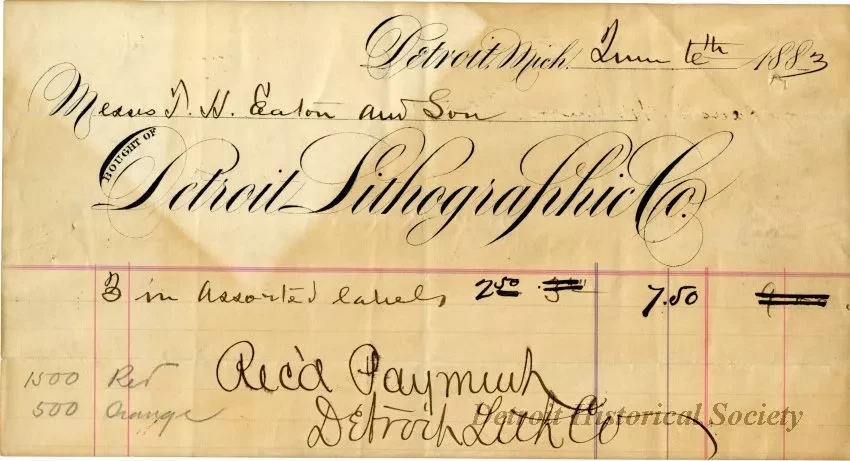 Detroit, Mich. June 6th 1883
Messrs T. H. Eaton and Son
BOUGHT OF
Detroit Lithographic Co.
3 m assorted labels 2 50 7.50
1500 Red
500 Orange
Rec'd Payment
Detroit Lith Co
Detroit Historical Society